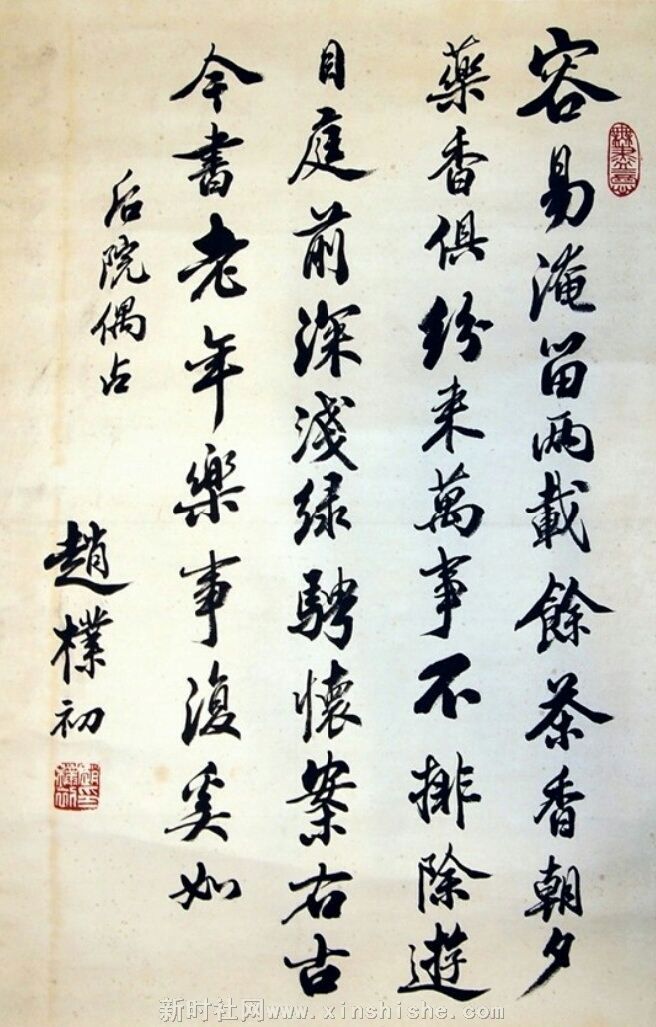 容易淹留兩載餘茶香朝夕
藥香俱紛来萬事不排除遊
目庭前深淺绿騁懷案右古
今書老年樂事復奚如
后院偶占
趙樸初
新时社网www.xinshishe.com